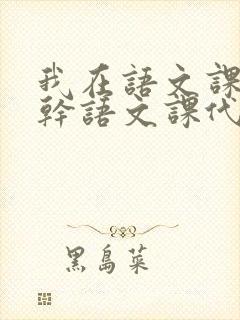 我在語文課
幹語文課代
黑島菜